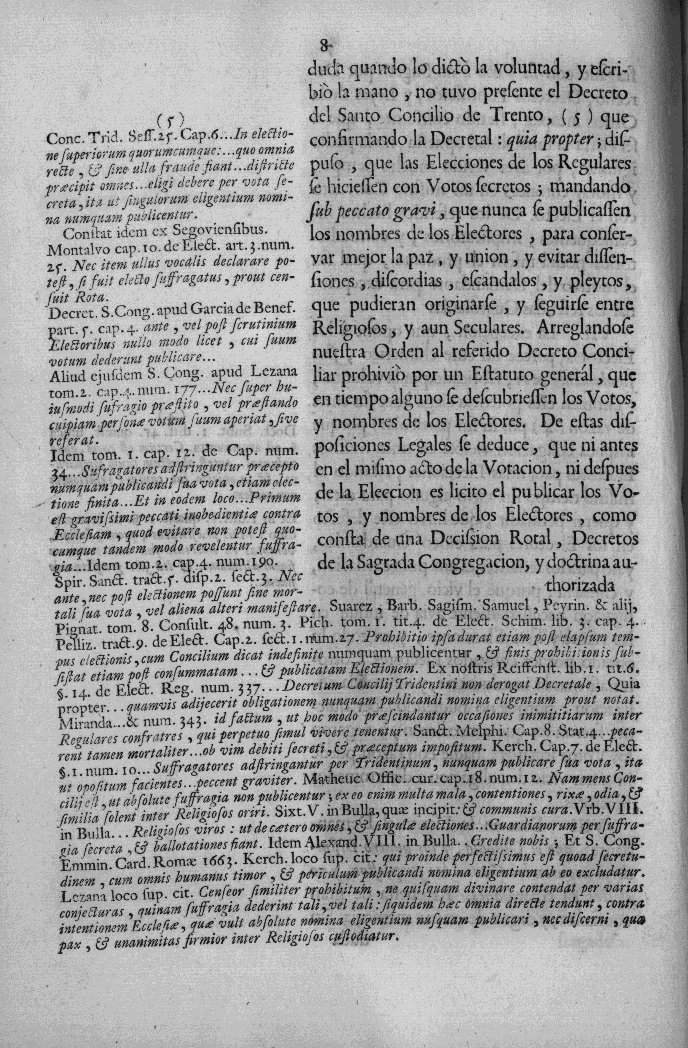 8
duda quando lo dictò la voluntad, y eſcri-
biò la mano, no tuvo preſente el Decreto
del Santo Concilio de Trento, (5) que
confirmando la Decretal: quia propter; diſ-
puſo, que las Elecciones de los Regulares
ſe hicieſſen con Votos ſecretos; mandando
ſub peccato gravi, que nunca ſe publicaſſen
los nombres de los Electores, para conſer-
var mejor la paz, y union, y evitar diſſen-
ſiones, diſcordias, eſcandalos, y pleytos,
que pudieran originarſe, y ſeguirſe entre
Religioſos, y aun Seculares. Arreglandoſe
nueſtra Orden al referido Decreto Conci-
liar prohiviò por un Eſtatuto generál, que
en tiempo alguno ſe deſcubrieſſen los Votos,
y nombres de los Electores. De eſtas diſ-
poſiciones Legales ſe deduce, que ni antes
en el miſmo acto de la Votacion, ni deſpues
de la Eleccion es licito el publicar los Vo-
tos, y nombres de los Electores, como
conſta de una Deciſsion Rotal, Decretos
de la Sagrada Congregacion, y doctrina au-
thorizada
(5)
Conc. Trid. Seſſ.25. Cap.6...In electio-
ne ſuperiorum quorumcumque:...quo omnia
recte, & ſine ulla fraude fiant...diſtricte
præcipit omnes...eligi debere per vota ſe-
creta, ita ut ſingulorum eligentium nomi-
na numquam publicentur.
Conſtat idem ex Segovienſibus.
Montalvo cap.10. de Elect. art.3.num.
25. Nec item ullus vocalis declarare po-
teſt, ſi fuit electo ſuffragatus, prout cen-
ſuit Rota.
Decret. S.Cong. apud Garcia de Beneſ.
part.5. cap.4. ante, vel poſt ſcrutinium
Electoribus nullo modo licet, cui ſuum
votum dederunt publicare...
Aliud ejuſdem S. Cong. apud Lezana
tom.2. cap.4. num. 177...Nec ſuper hu-
iuſmodi ſufragio præſtito, vel præſtando
cuipiam perſonæ votum ſuum aperiat, ſive
referat.
Idem tom. 1. cap. 12. de Cap. num.
34...Sufragatores adſtringuntur præcepto
numquam publicandi ſua vota, etiam elec-
tione finita...Et in eodem loco...Primum
eſt graviſsimi peccati inobedientiæ contra
Eccleſiam, quod evitare non poteſt quo-
cumque tandem modo revelentur ſuffra-
gia...Idem tom.2. cap.4. num.190.
Spir. Sanct. tract.5. diſp.2. ſect.3. Nec
ante, nec poſt electionem poſſunt ſine mor-
tali ſua vota, vel aliena alteri manifeſtare. Suarez, Barb. Sagiſm. Samuel, Peyrin. & alij,
Pignat. tom. 8. Conſult. 48, num. 3. Pich. tom. 1. tit.4. de Elect. Schim. lib. 3. cap. 4.
Pelliz. tract.9. de Elect. Cap.2. ſect.1.num.27. Prohibitio ipſa durat etiam poſt elapſum tem-
pus electionis, cum Concilium dicat indefinite numquam publicentur, & finis prohibitionis ſub-
ſiſtat etiam poſt conſummatam...& publicatam Electionem. Ex noſtris Reiffenſt. lib.1. tit.6.
§.14. de Elect. Reg. num. 337...Decretum Concilij Tridentini non derogat Decretale, Quia
propter...quamvis adijecerit obligationem nunquam publicandi nomina eligentium prout notat.
Miranda...& num. 343. id factum, ut hoc modo præſcindantur occaſiones inimititiarum inter
Regulares confratres, qui perpetuo ſimul vivere tenentur. Sanct. Melphi. Cap.8. Stat.4...peca-
rent tamen mortaliter...ob vim debiti ſecreti, & præceptum impoſitum. Kerch. Cap.7. de Elect.
§.1.num. 10...Suffragatores adſtringantur per Tridentinum, nunquam publicare ſua vota, ita
ut opoſitum facientes...peccent graviter. Matheuc. Offic. cur. cap.18. num.12. Nam mens Con-
cilij eſt, ut abſolute ſuffragia non publicentur; ex eo enim multa mala, contentiones, rixæ, odia, &
ſimilia ſolent inter Religioſos oriri. Sixt.V. in Bulla, quæ incipit: & communis cura. Vrb.VIII.
in Bulla...Religioſos viros: ut de cætero omnes, & ſingulæ electiones...Guardianorum per ſuffra-
gia ſecreta, & ballotationes fiant. Idem Alexand.VIII. in Bulla. Credite nobis; Et S. Cong.
Emmin. Card. Romæ 1663. Kerch. loco ſup. cit: qui proinde perfectiſsimus eſt quoad ſecretu-
dinem, cum omnis humanus timor, & periculum publicandi nomina eligentium ab eo excludatur.
Lezana loco ſup. cit. Cenſeor ſimiliter prohibitum, ne quiſquam divinare contendat per varias
conjecturas, quinam ſuffragia dederint tali, vel tali: ſiquidem hæc omnia directe tendunt, contra
intentionem Eccleſiæ, quæ vult abſolute nomina eligentium nuſquam publicari, nec diſcerni, quo
pax, & unanimitas firmior inter Religioſos cuſtodiatur.